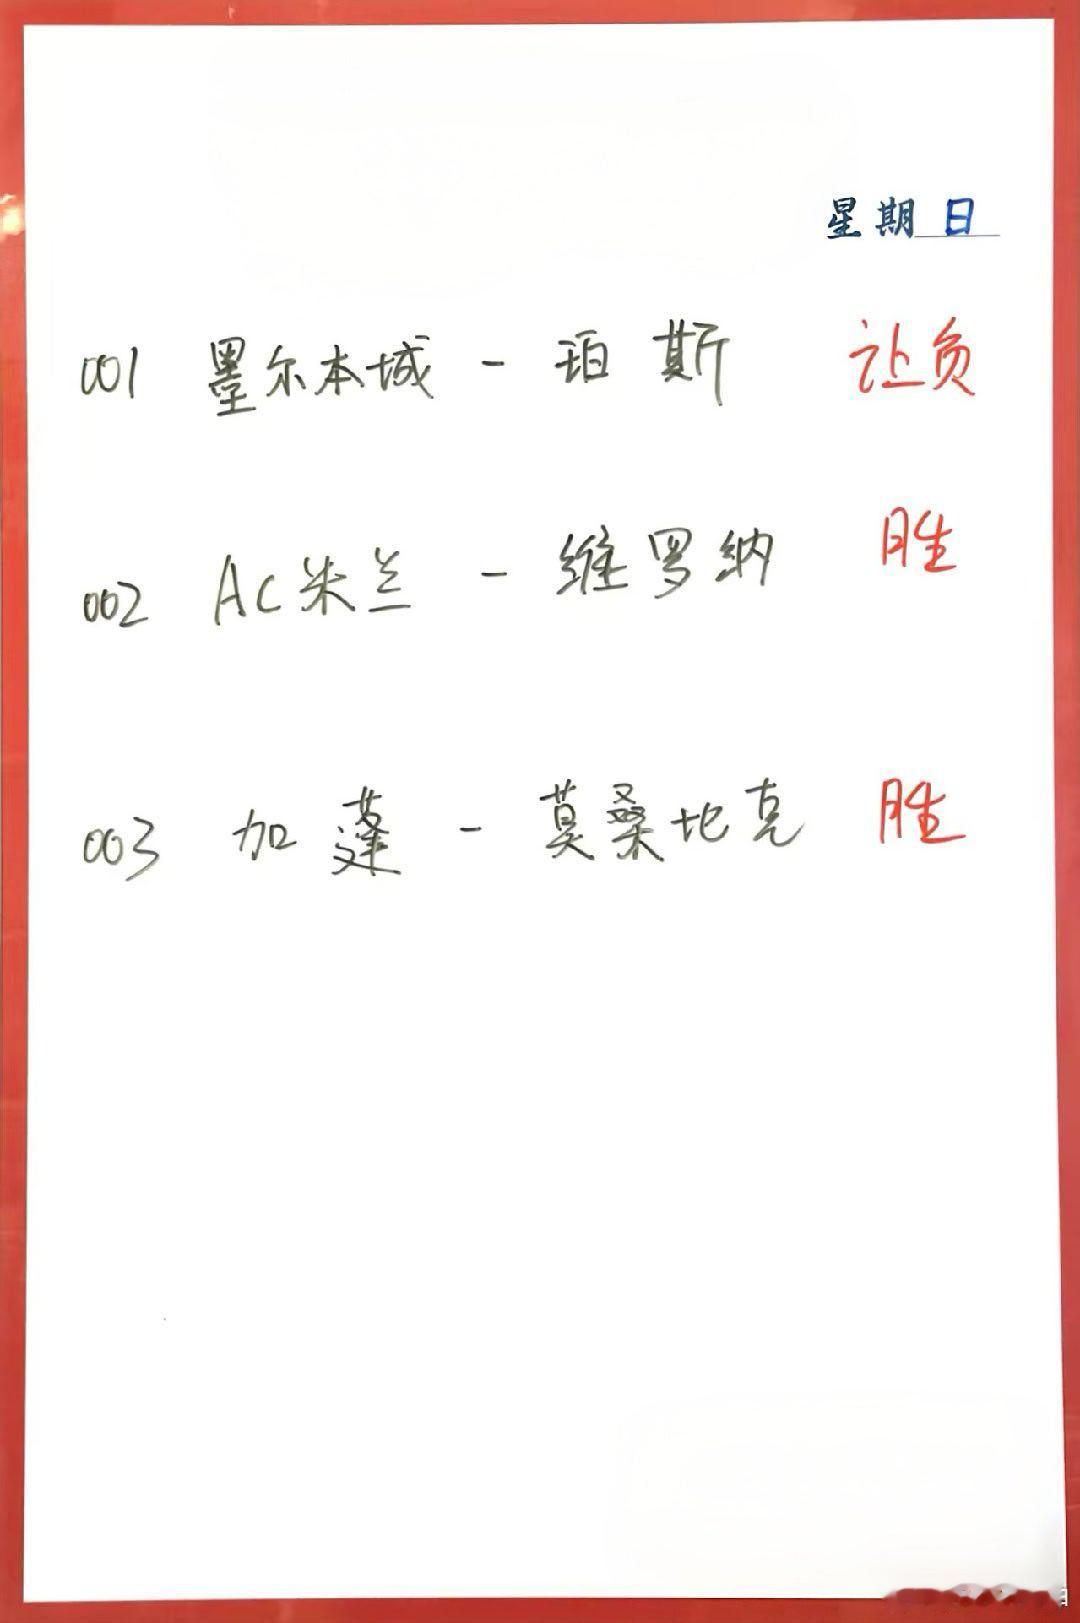 星期日
001 墨尔本城 - 珀斯 让负
002 AC米兰 - 维罗纳 胜
003 加蓬 - 莫桑比克 胜